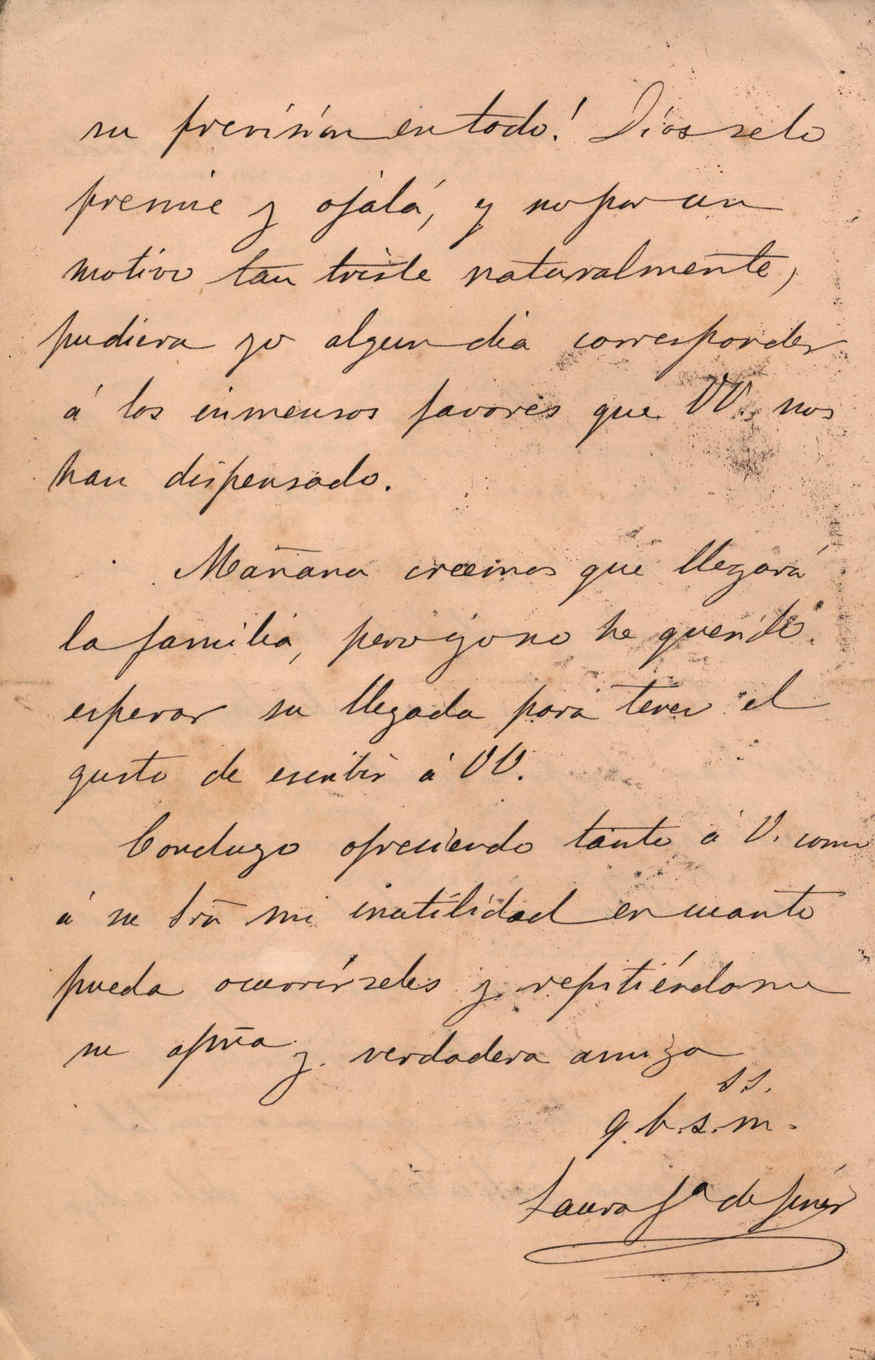 su previsión en todo! Dios se lo
premie y ojalá, y no por un
motivo tan triste naturalmente,
pudiera yo algun dia corresponder
á los inmensos favores que VV. nos
han dispensado.
Mañana creemos que llegará
la familia, pero yo no he querido
esperar su llegada para tener el
gusto de escribir á VV.
Concluyo ofreciendo tanto á V. como
á su Srã mi inutilidad en cuanto
pueda ocurrírseles y repitiéndome
su afma y verdadera amiga
s.s.
q.b.s.m.
Laura Gª de